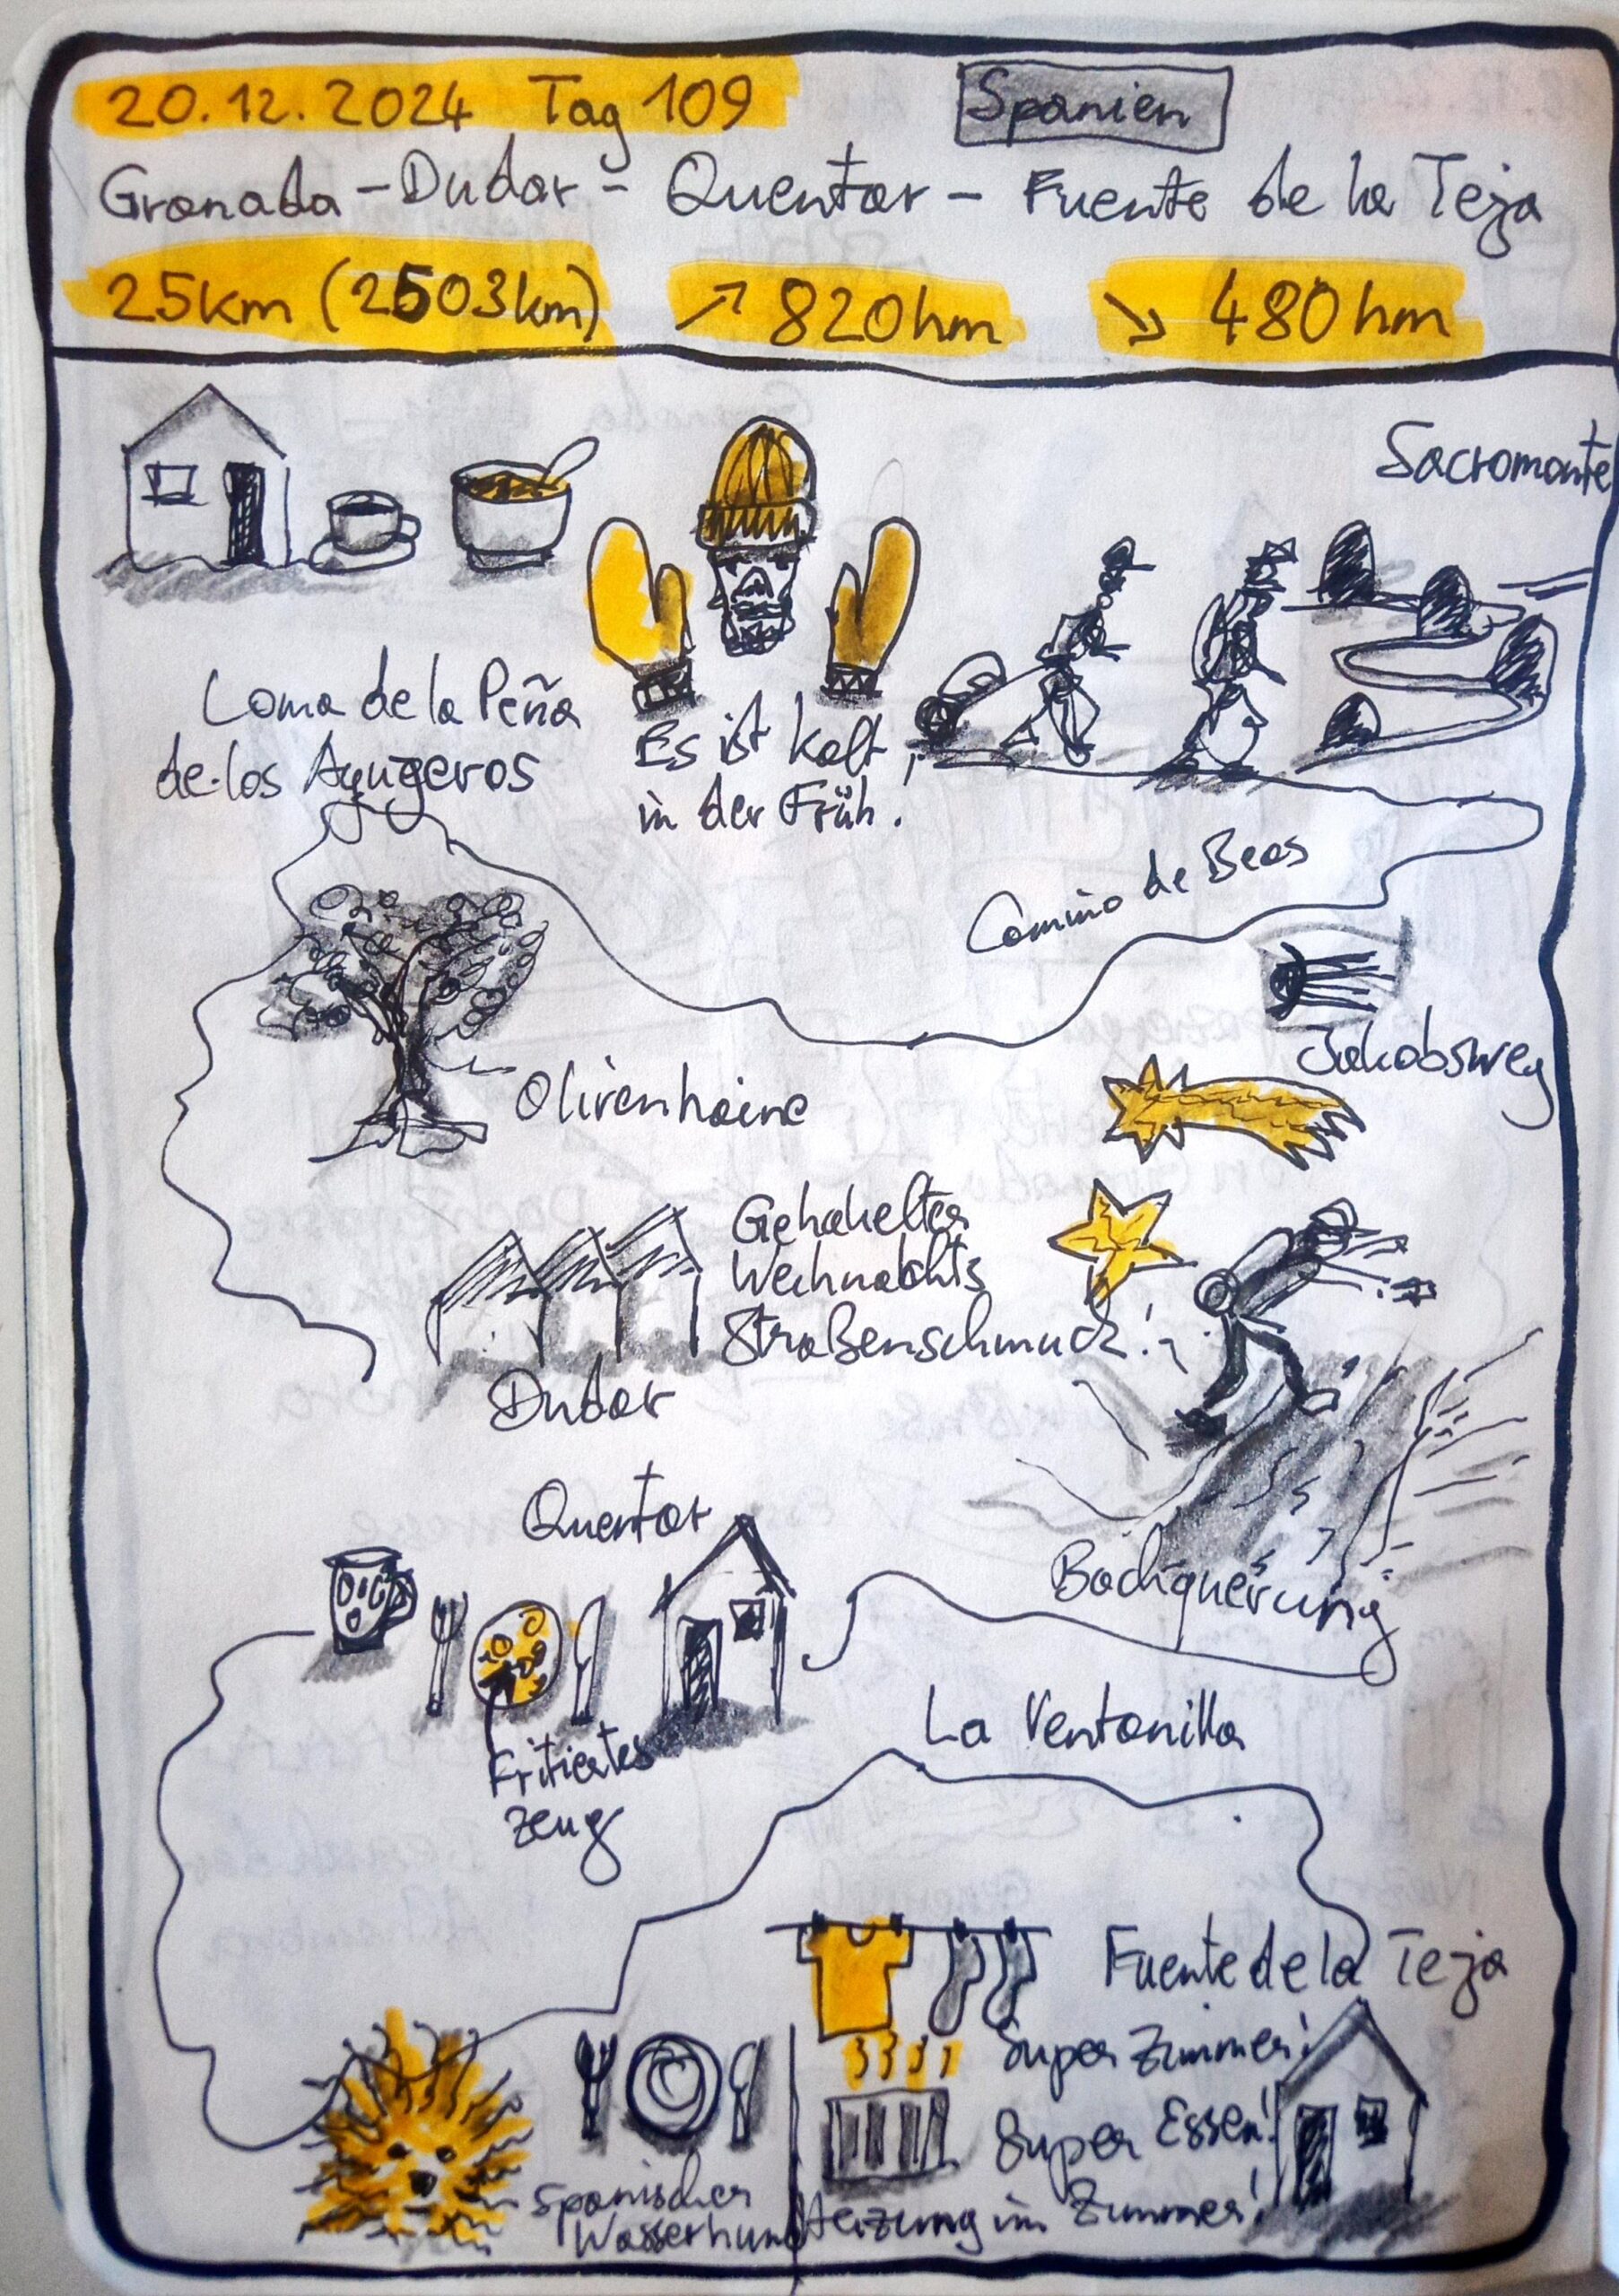 20.12.2024 Tag 109
Spanien
Granada - Dudar - Quentar - Fuente de la Teja
25km (2503km) ↗ 820hm ↘ 480hm
Sacromonte
Loma de la Peña
de los Ayugeros
Es ist kalt
in der Früh!
Camino de Beas
Jakobsweg
Olivenhaine
Gehäkelter
Weihnachts
Straßenschmuck!
Dudar
Quentar
Bachquerung
Fritiertes
Zeug
La Ventanilla
Fuente de la Teja
Super Zimmer!
Super Essen!
Heizung im Zimmer!
Spanischer
Wasserhund